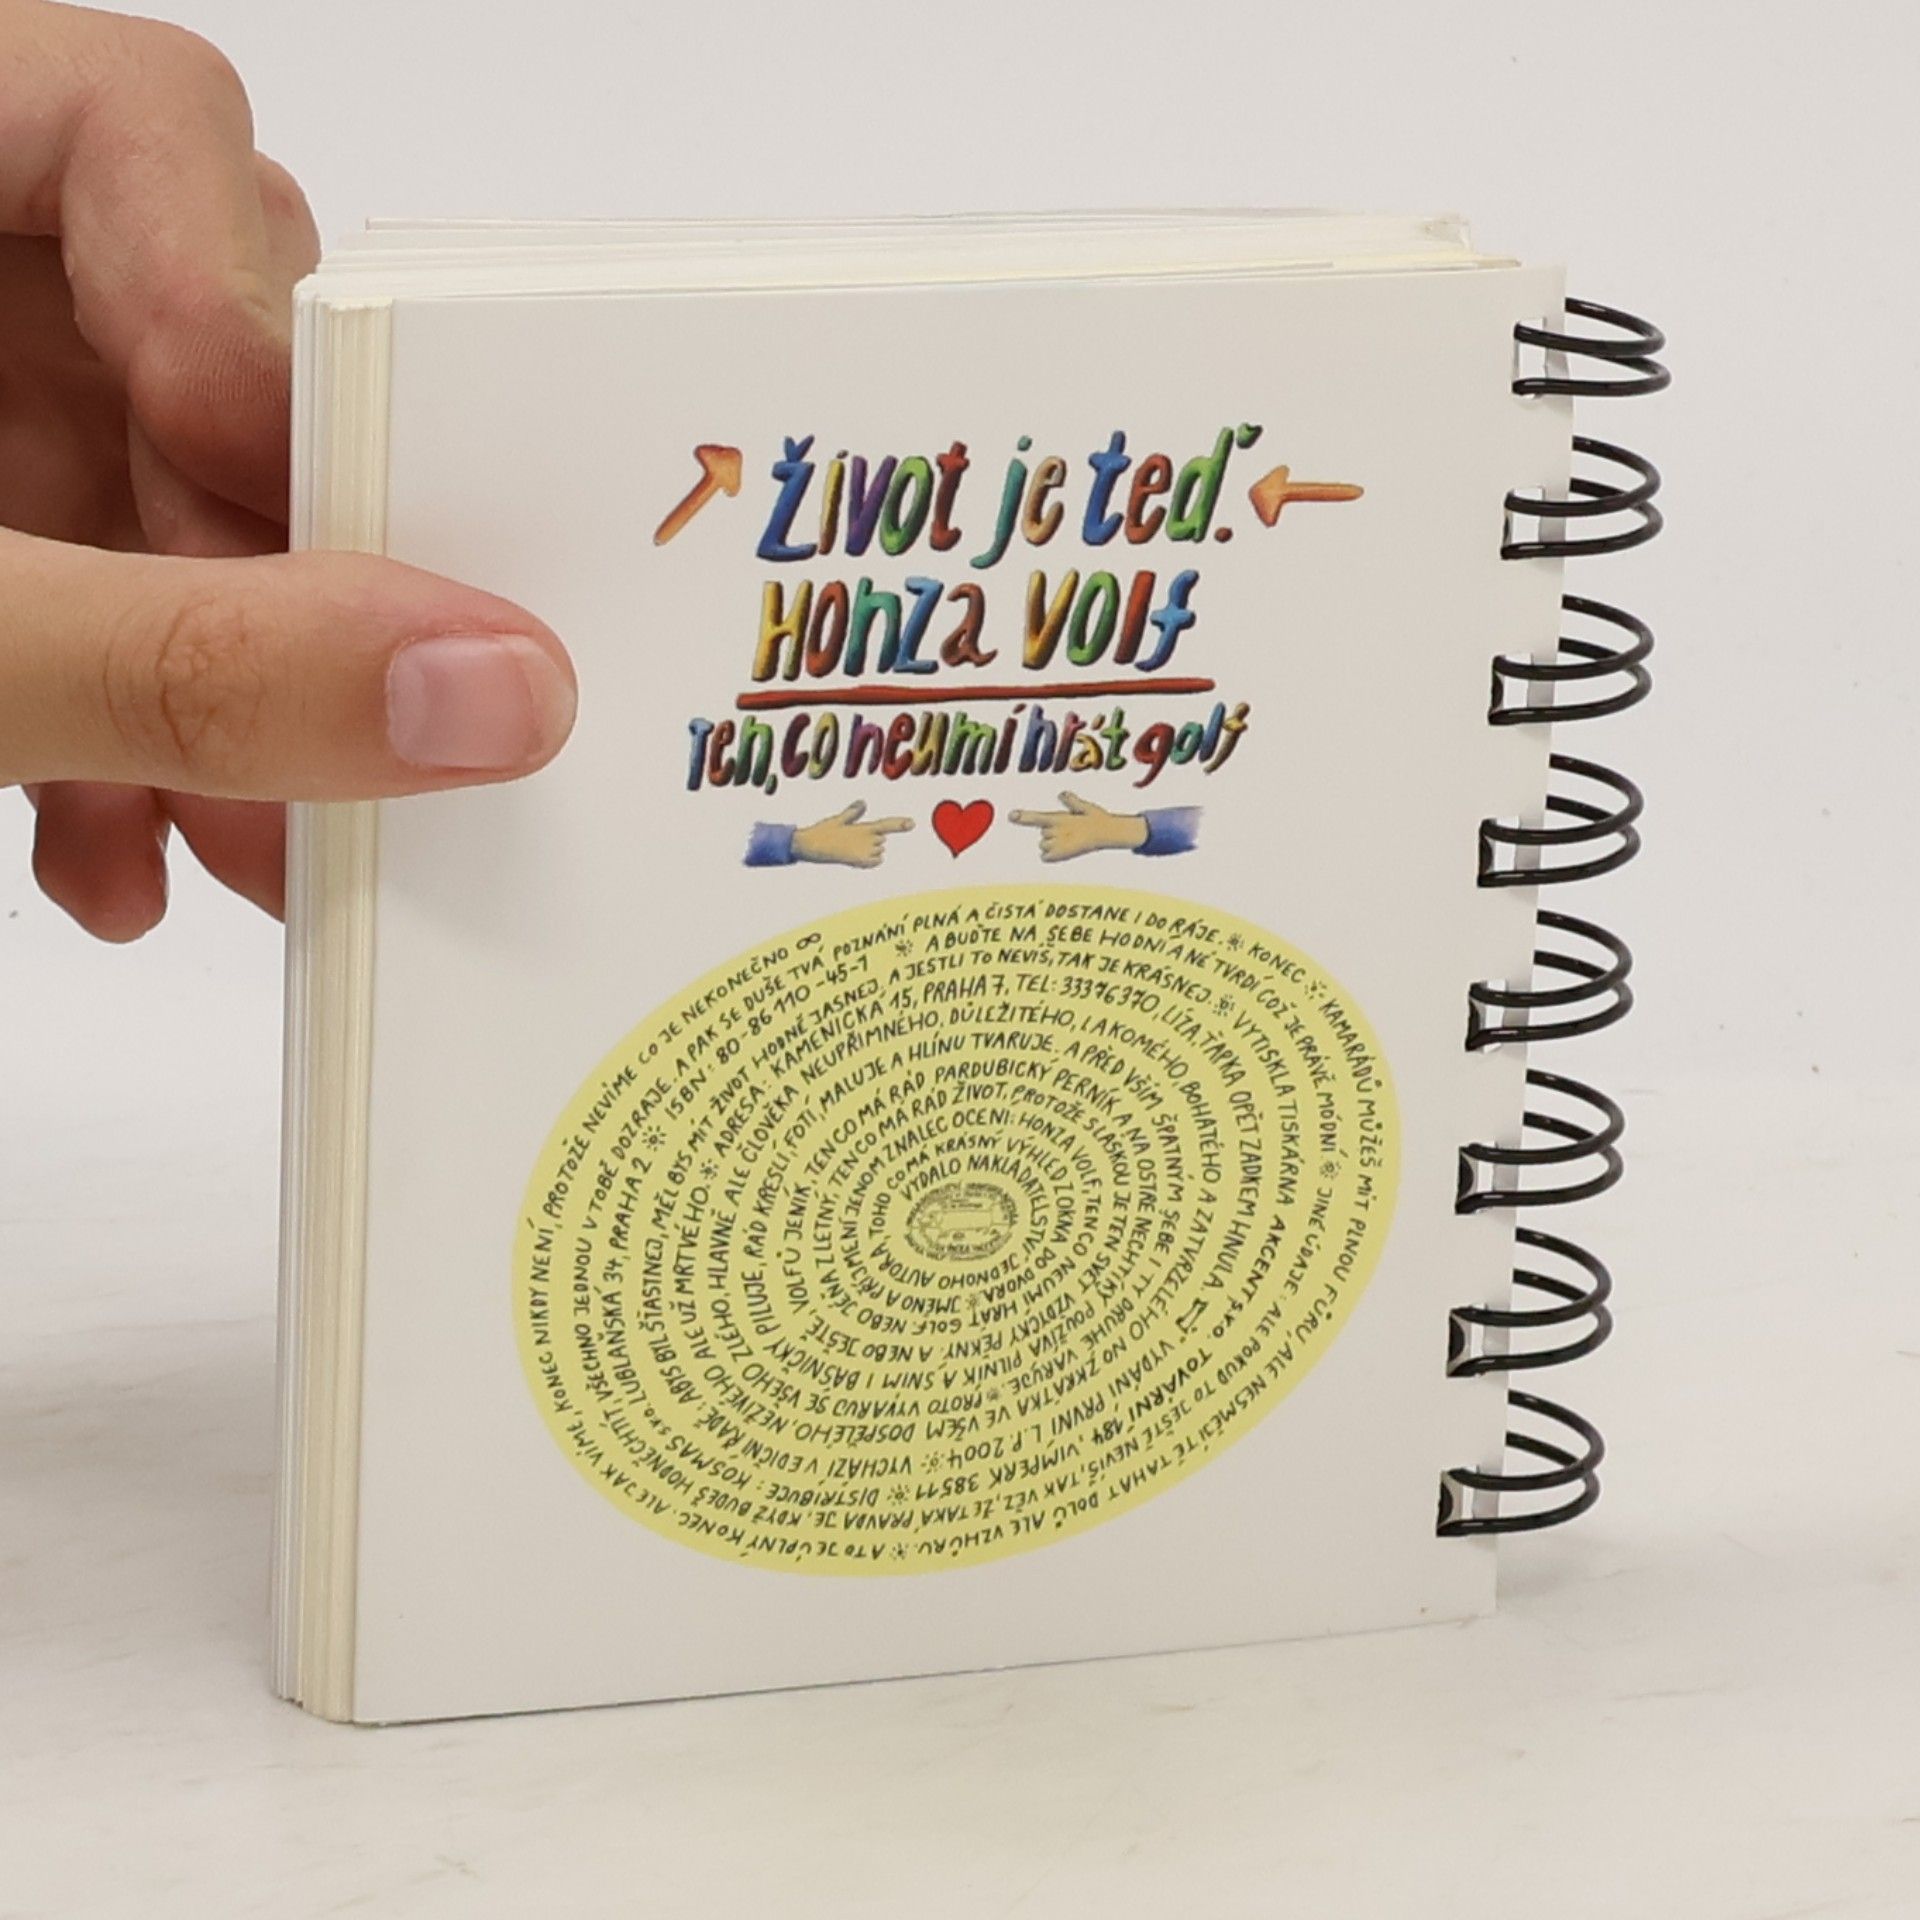 Život je teď.
Honza Volf
Ten, co neumí hrát golf
VYDALO NAKLADATELSTVÍ JEDNOHO AUTORA, TOHO CO MÁ KRÁSNÝ VÝHLED Z OKNA DO DVORA. JMÉNO A PŘÍJMENÍ JENOM ZNALEC OCENÍ: HONZA VOLF, TEN CO NEUMÍ HRÁT GOLF. NEBO JÉŇA Z LETNÝ, TEN CO MÁ RÁD ŽIVOT, PROTOŽE S LÁSKOU JE TEN SVĚT VŽDICKY PĚKNÝ. A NEBO JEŠTĚ, VOLFŮ JENÍK, TEN CO MÁ RÁD PARDUBICKÝ PERNÍK A NA OSTRÉ NECHTÍKY POUŽÍVÁ PILNÍK A S NÍM I BÁSNIČKY PILUJE, RÁD KRESLÍ, FOTÍ, MALUJE A HLÍNU TVARUJE. A PŘED VŠÍM ŠPATNÝM SEBE I TY DRUHÉ VARUJE. PROTO VYVARUJ SE VŠEHO ZLÉHO, HLAVNĚ ALE ČLOVĚKA NEUPŘÍMNÉHO, DŮLEŽITÉHO, LAKOMÉHO, BOHATÉHO A ZATVRZELÉHO NO ZKRÁTKA VE VŠEM DOSPĚLÉHO, NEŽIVÉHO ALE UŽ MRTVÉHO. ADRESA: KAMENICKÁ 15, PRAHA 7, TEL: 33376370, LÍZA, ŤAPKA OPĚT ZADKEM HNULA. VYDÁNÍ PRVNÍ L.P. 2004 VYCHÁZÍ V EDIČNÍ ŘADĚ: ABYS BYL ŠŤASTNEJ, MĚL BYS MÍT ŽIVOT HODNĚ JASNEJ, A JESTLI TO NEVÍŠ, TAK JE KRÁSNEJ. VYTISKLA TISKÁRNA AKCENT s.r.o. TOVÁRNÍ 184, VIMPERK 38511 DISTRIBUCE: KOSMAS s.r.o. LUBLAŇSKÁ 34, PRAHA 2 ISBN: 80-86110-45-1 A BUĎTE NA SEBE HODNÍ A NE TVRDÍ COŽ JE PRÁVĚ MÓDNÍ JINÉ ÚDAJE: ALE POKUD TO JEŠTĚ NEVÍŠ, TAK VĚZ, ŽE TAKÁ PRAVDA JE, KDYŽ BUDEŠ HODNĚ CHTÍT, VŠECHNO JEDNOU V TOBĚ DOZRAJE. A PAK SE DUŠE TVÁ POZNÁNÍ PLNÁ A ČISTÁ DOSTANE I DO RÁJE. KONEC KAMARÁDŮ MŮŽEŠ MÍT PLNOU FŮRU, ALE NESMĚJÍ TĚ TAHAT DOLŮ ALE VZHŮRU. A TO JE ÚPLNÝ KONEC. ALE JAK VÍME, KONEC NIKDY NENÍ, PROTOŽE NEVÍME CO JE NEKONEČNO ∞